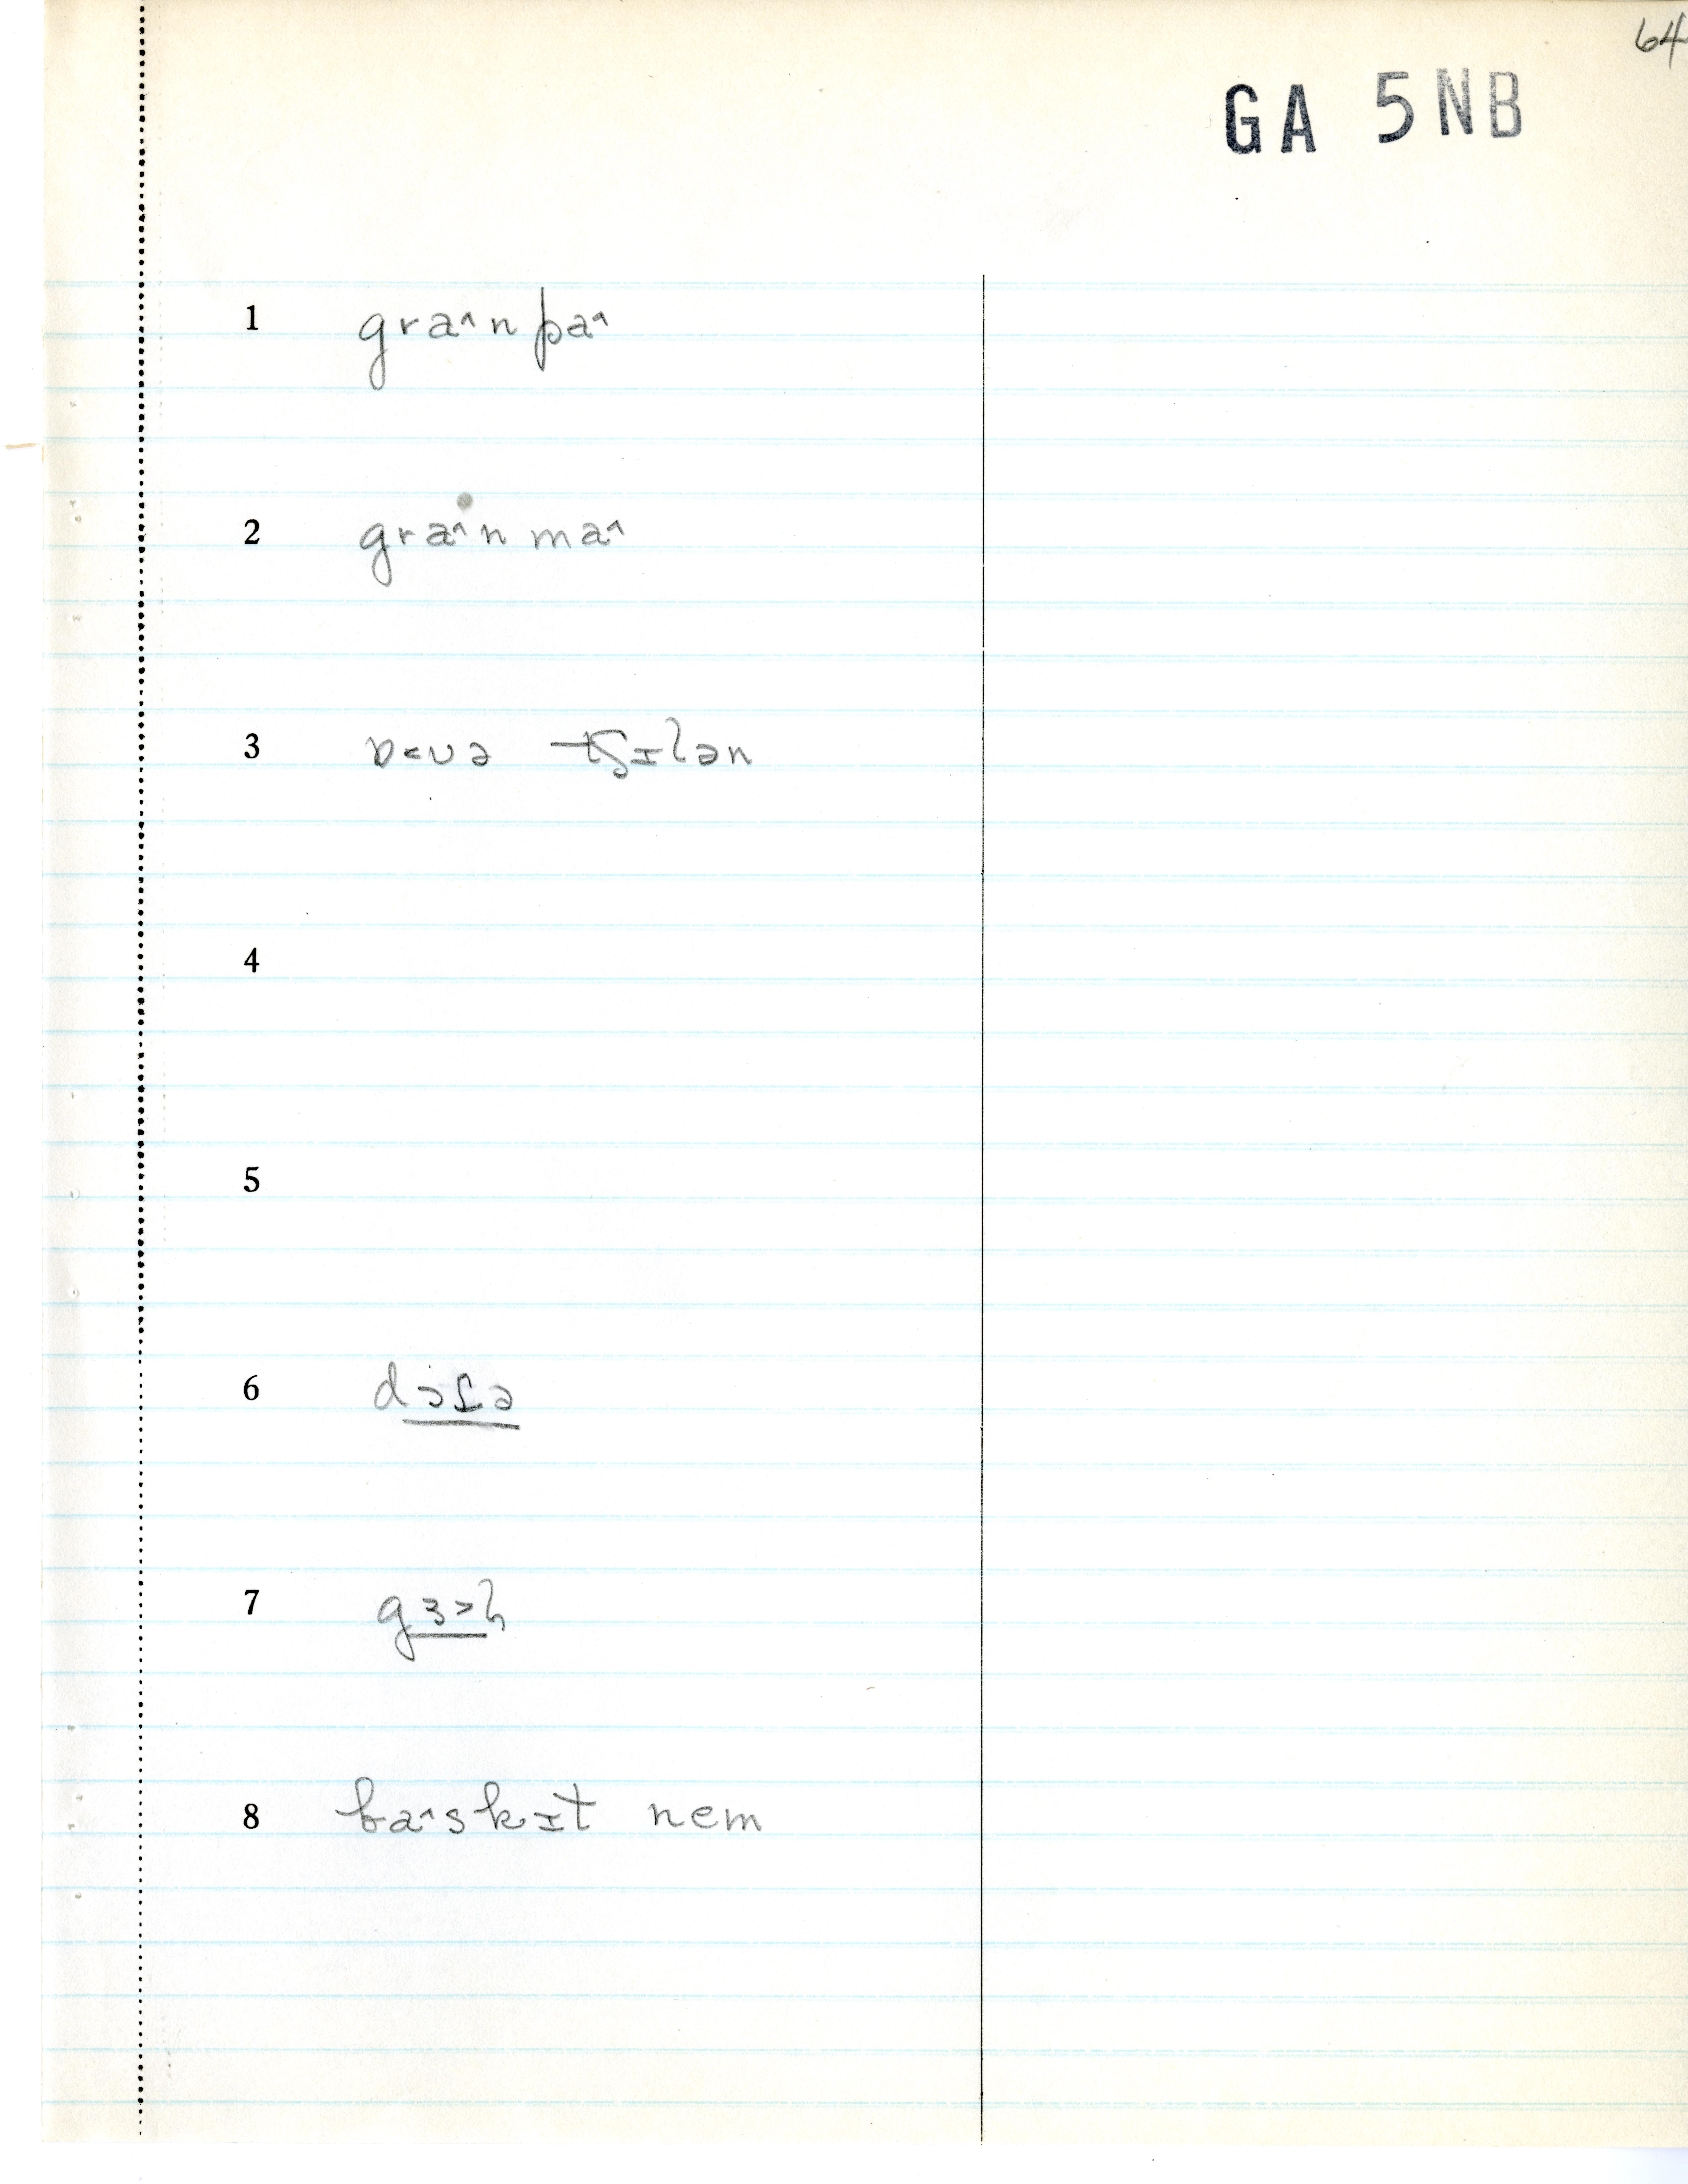 64
GA 5NB
1 graˆn paˆ
2 graˆn maˆ
3 ɒ˂ʊə tʃɪlən
4
5
6 dɔtə
7 gɜ˃l
8 baˆskɪt nem